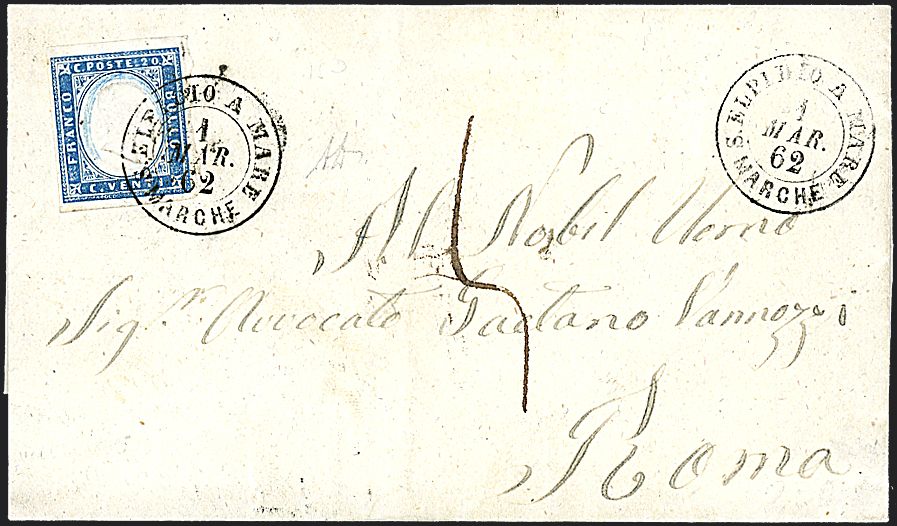 C. POSTE. 20
FRANCO
BOLLO
C. VENTI
S. ELPIDIO A MARE
1
MAR.
62
MARCHE
S. ELPIDIO A MARE
1
MAR.
62
MARCHE
Al Nobil Uomo
Sig.r Avvocato Gaetano Vannozzi
Roma